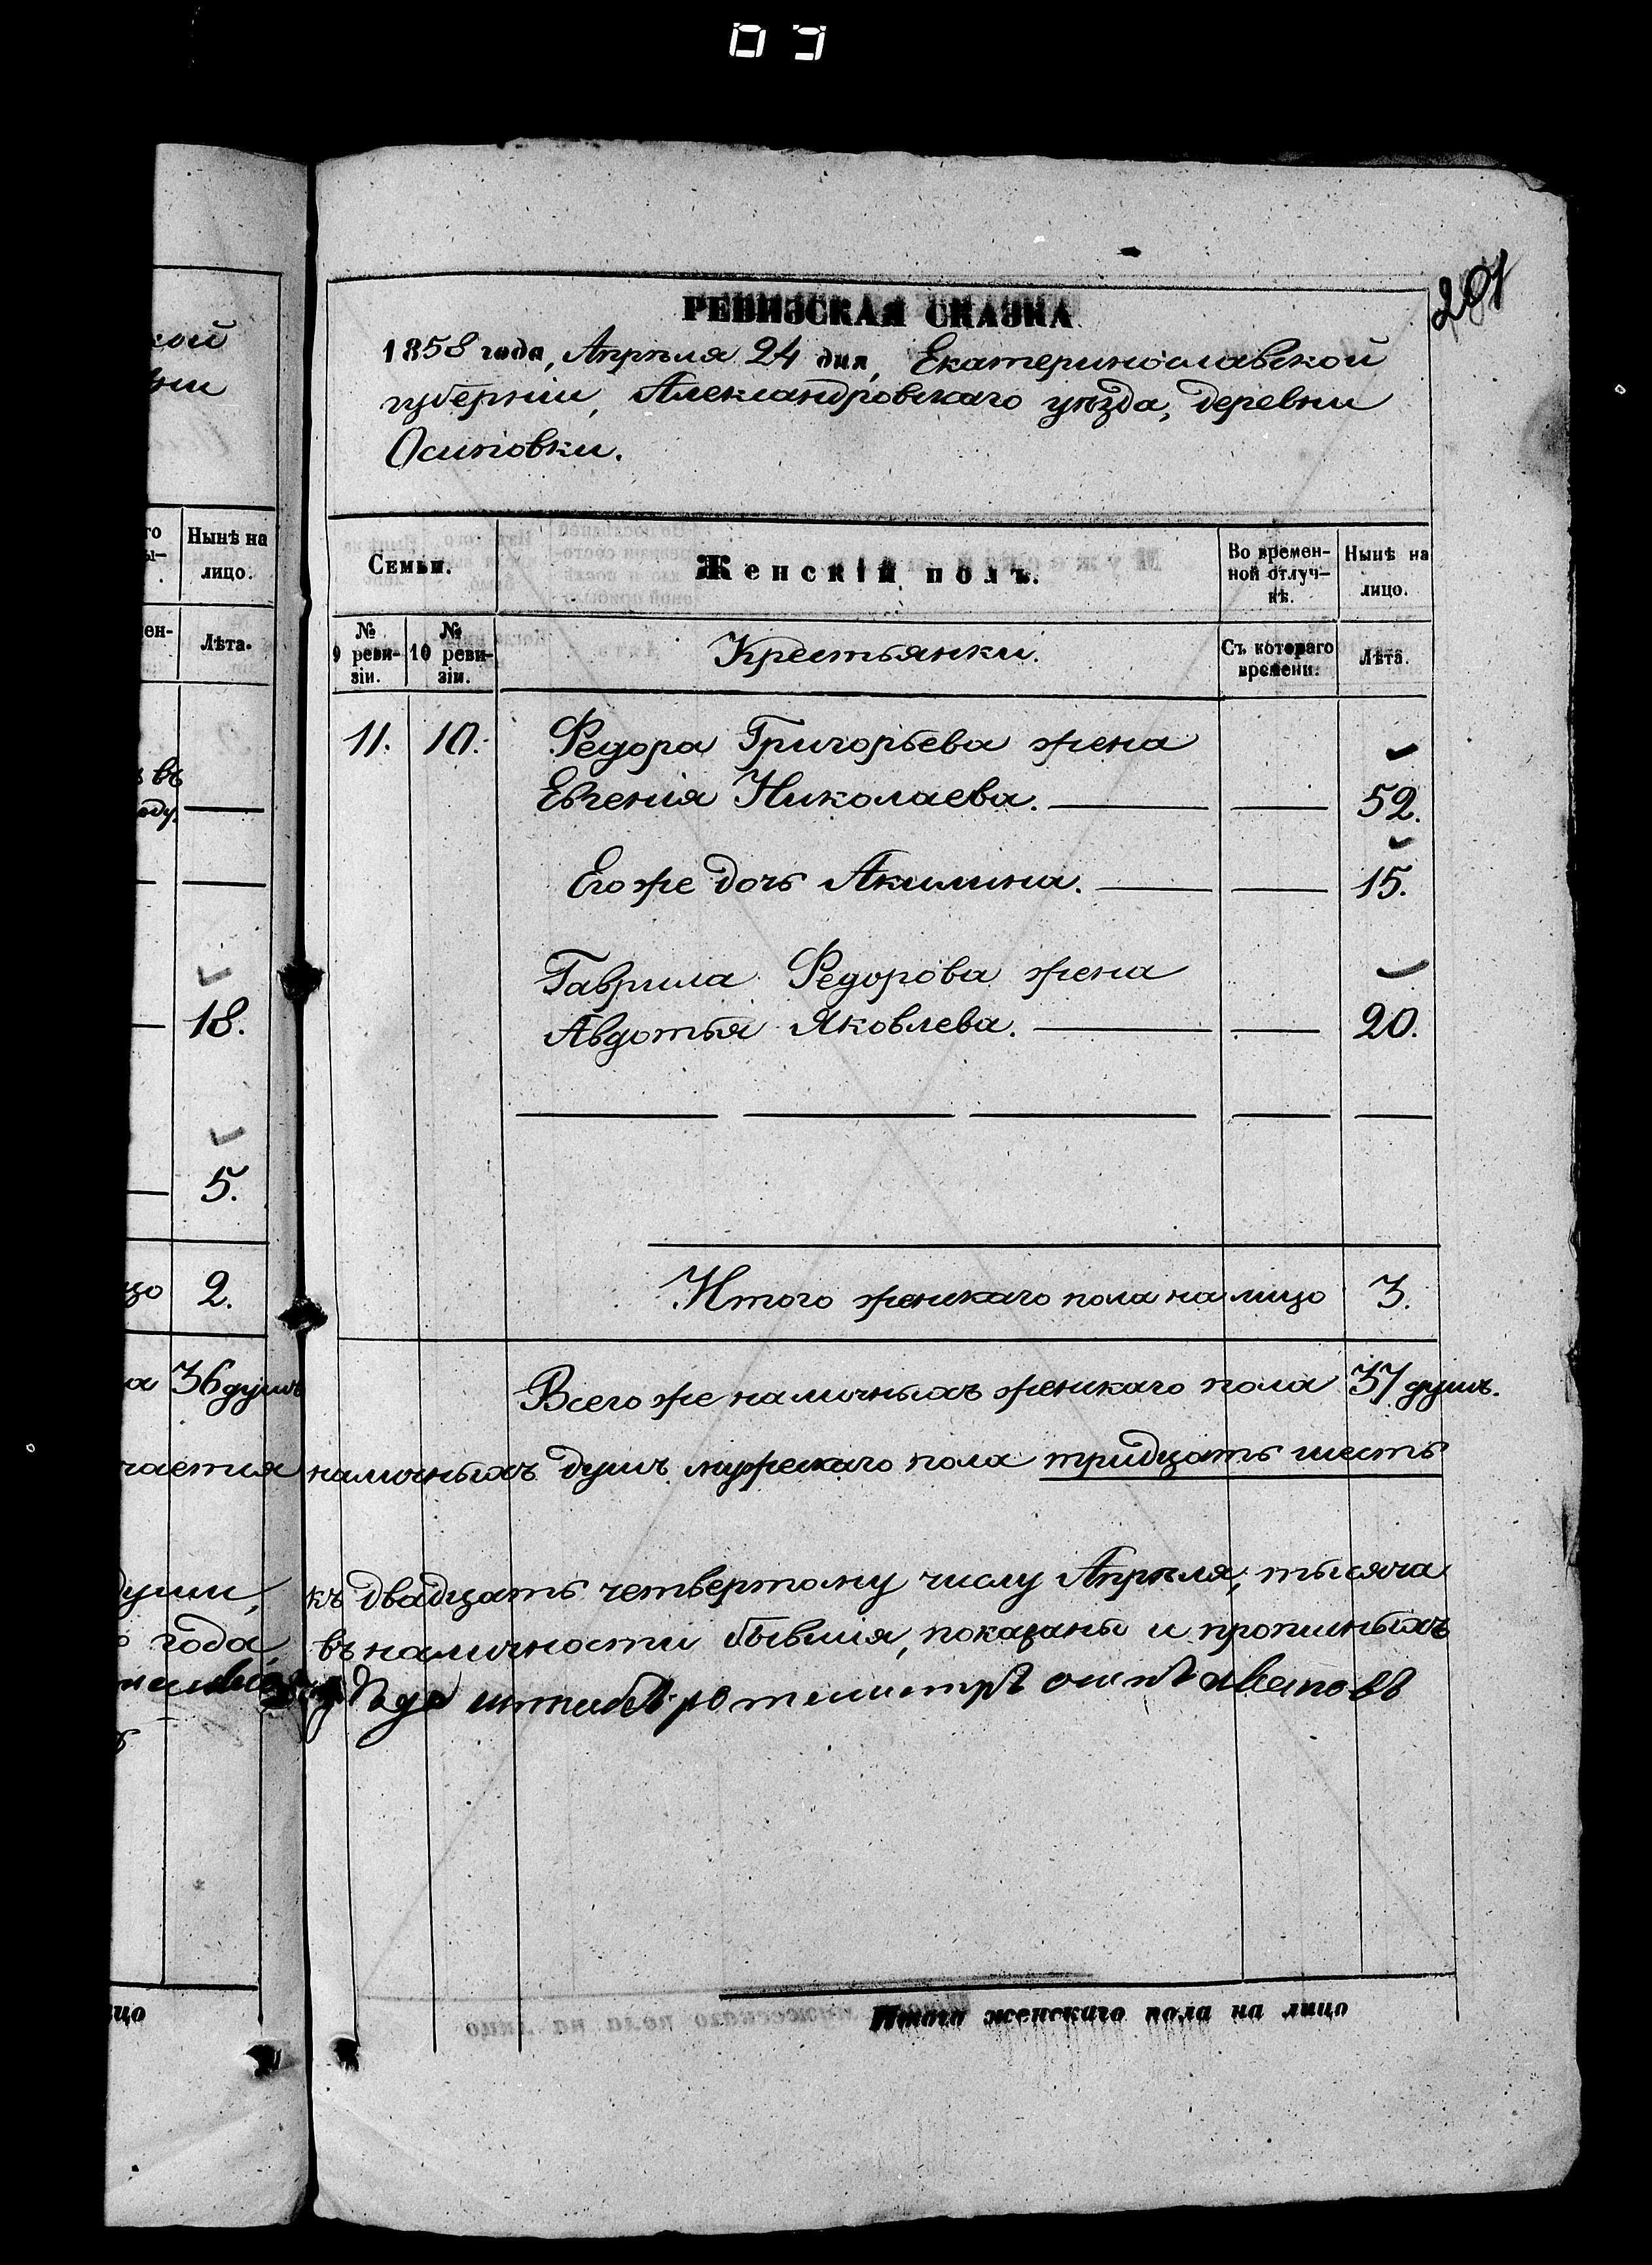 201
РЕВИЗСКАЯ СКАЗКА
1858 года, Апрѣля 24 дня, Екатеринославской
губерніи, Александровскаго уѣзда, деревни
Осиповки.
Семьи.
Женскій полъ.
Во времен-
ной отлуч-
кѣ.
Нынѣ на
лицо.
№
9 реви-
зіи.
№
10 реви-
зіи.
Крестьянки.
Съ котораго
времени.
Лѣта.
11. 10. Федора Григорьева жена
Евгенія Николаева. 52.
Его же дочь Акилина. 15.
Гаврила Федорова жена
Авдотья Яковлева. 20.
Итого женскаго пола на лицо 3.
Всего же наличныхъ женскаго пола 37 душъ.
наличныхъ душъ мужескаго пола тридцать шесть
къ двадцать четвертому числу Апрѣля, тысяча
въ наличности бывшія, показаны и прописныхъ
Итого женскаго пола на лицо
кой
Нынѣ на
лицо.
Лѣта.
въ
18.
5.
2.
36 душъ
души,
года